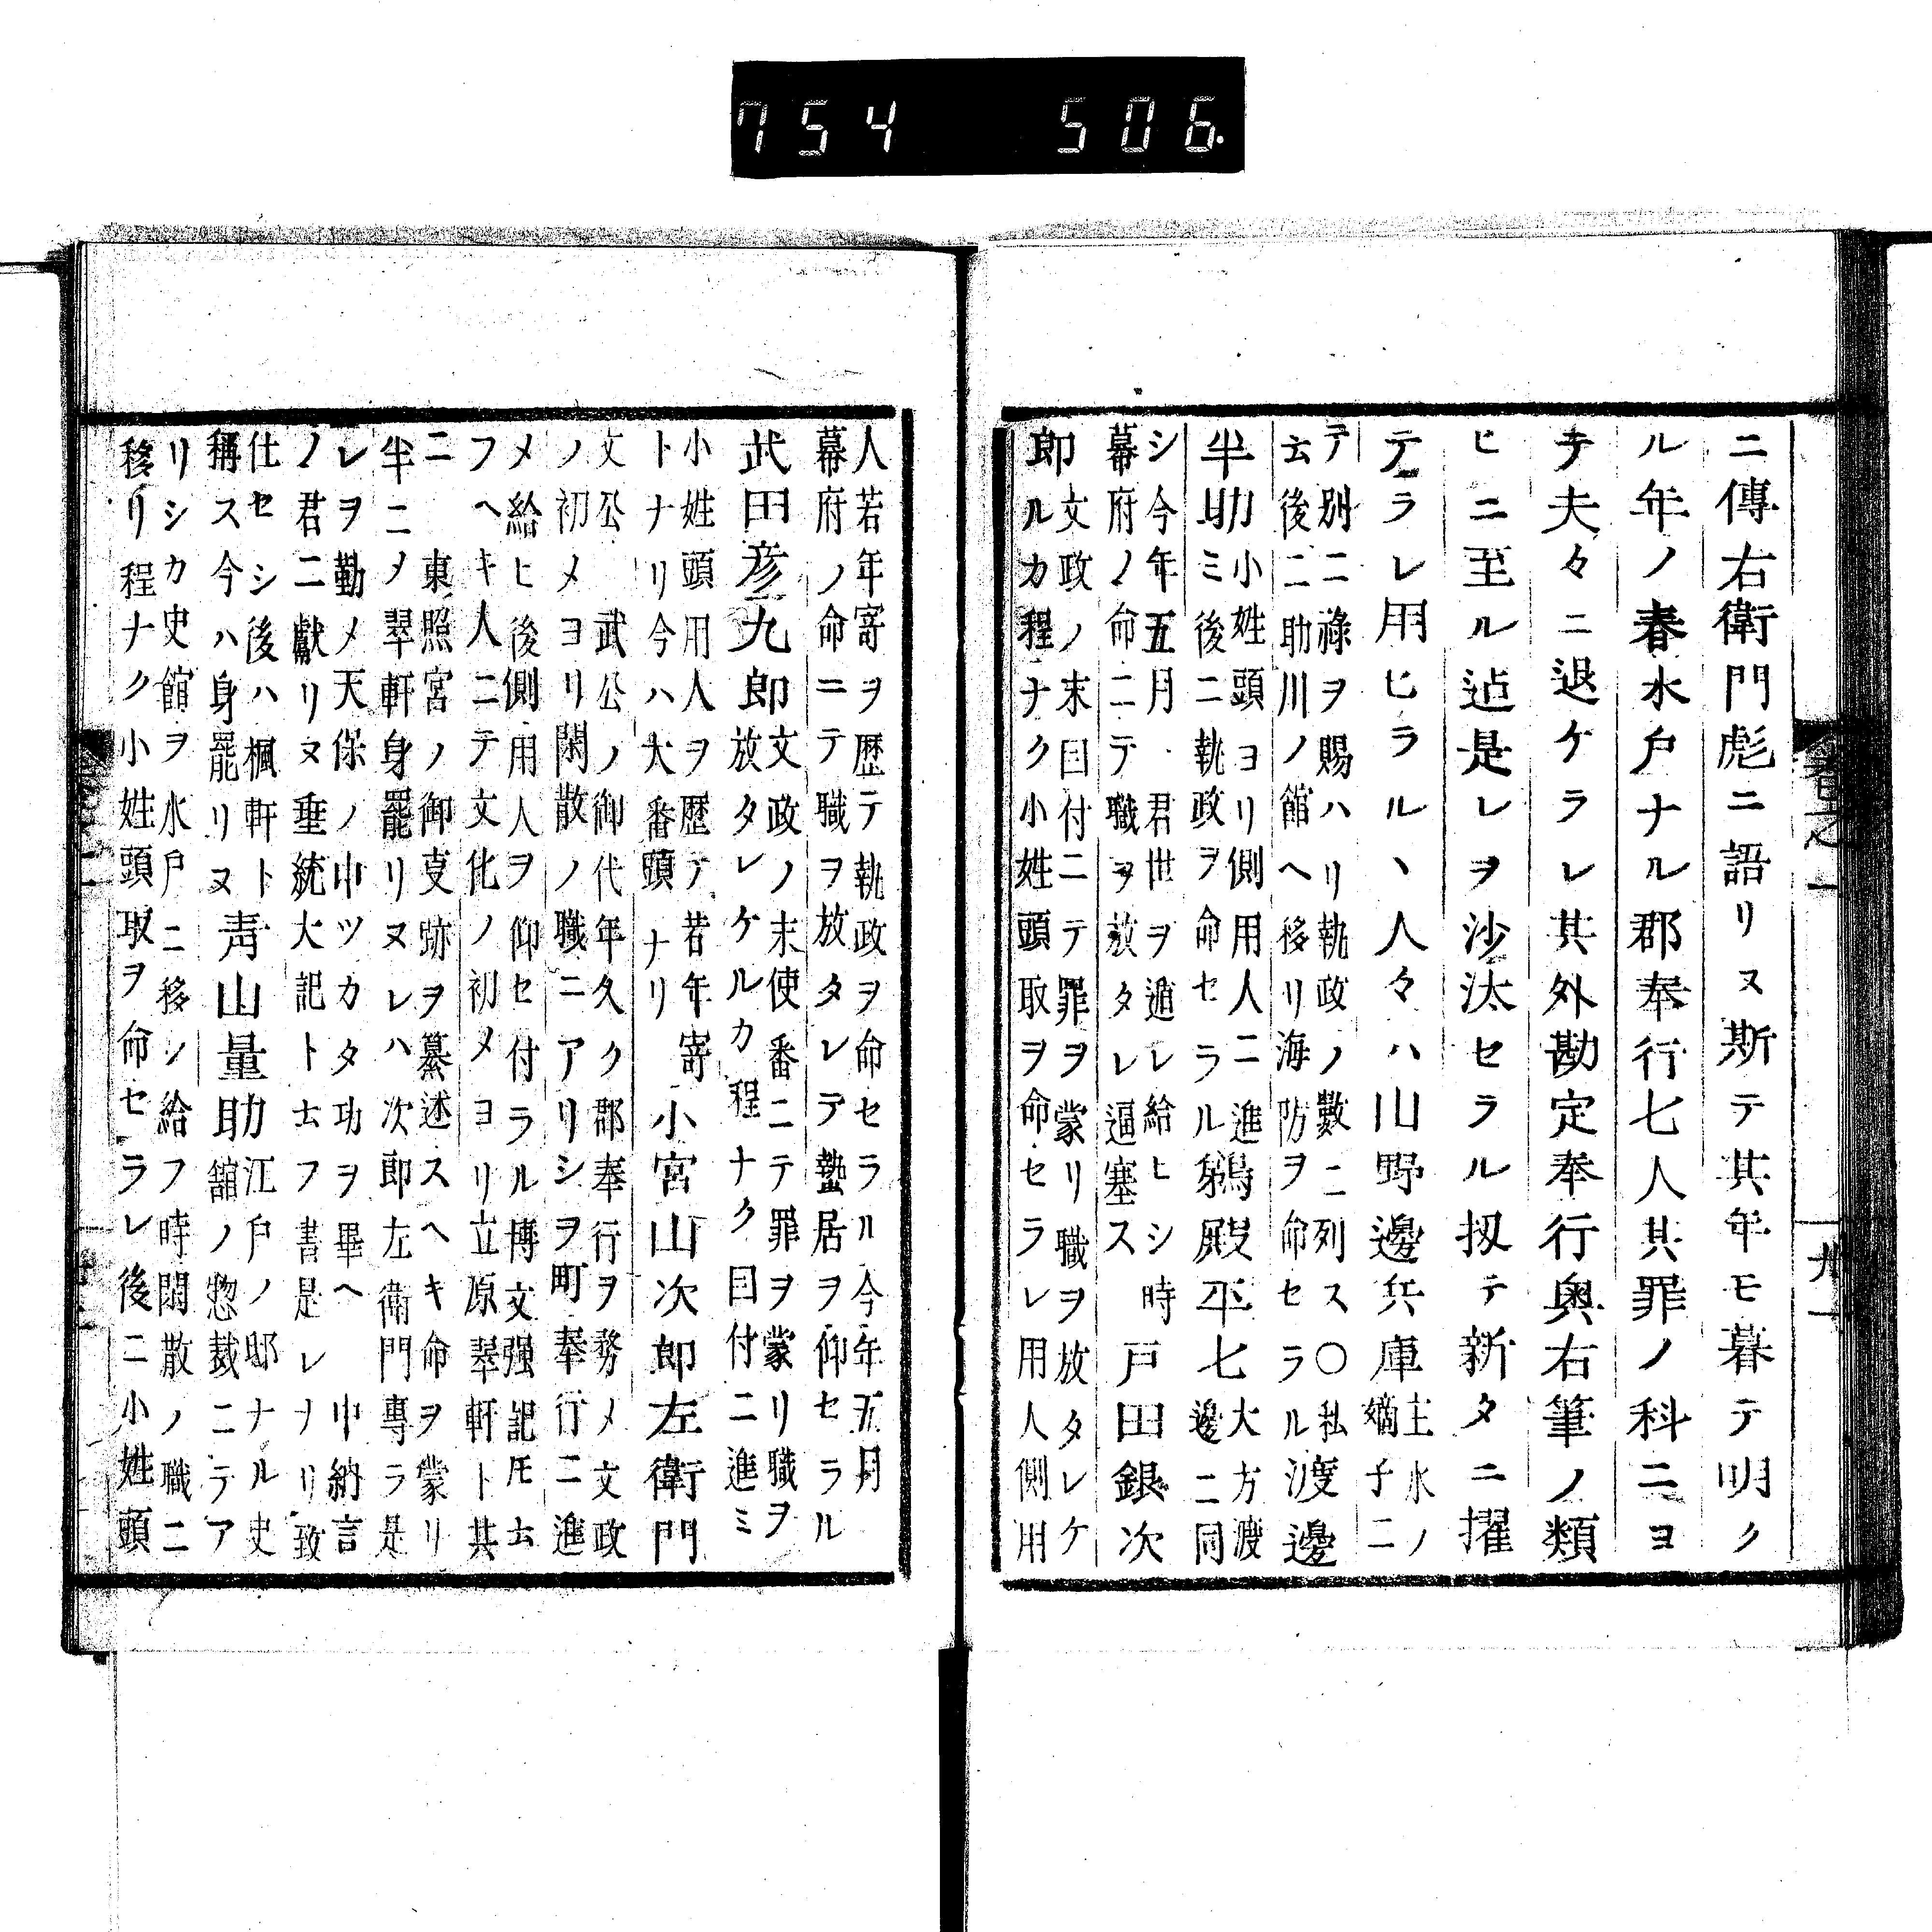 754 506.
ニ傳右衛門彪ニ語リヌ斯テ其年モ暮テ明ク
ル年ノ春水戸ナル郡奉行七人其罪ノ科ニヨ
テ夫々ニ退ケラレ其外勘定奉行奥右筆ノ類
ヒニ至ル迠是レヲ沙汰セラル扨テ新タニ擢
テラレ用ヒラル、人々ハ山野邊兵庫
主水ノ
嫡子ニ
テ別ニ祿ヲ賜ハリ執政ノ數ニ列ス〇私
云後ニ助川ノ館ヘ移リ海防ヲ命セラル
渡邊
半助
小姓頭ヨリ側用人ニ進
ミ後ニ執政ヲ命セラル
鵜殿平七
大方渡
邊ニ同
シ今年五月 君世ヲ遁レ給ヒシ時
幕府ノ命ニテ職ヲ放タレ逼塞ス
戸田銀次
郎
文政ノ末目付ニテ罪ヲ蒙リ職ヲ放タレケ
ルカ程ナク小姓頭取ヲ命セラレ用人側用
人若年寄ヲ歴テ執政ヲ命セラル今年五月
幕府ノ命ニテ職ヲ放タレテ蟄居ヲ仰セラル
武田彦九郎
文政ノ末使番ニテ罪ヲ蒙リ職ヲ
放タレケルカ程ナク目付ニ進ミ
小姓頭用人ヲ歴テ若年寄
トナリ今ハ大番頭ナリ
小宮山次郎左衛門
文公 武公ノ御代年久ク郡奉行ヲ務メ文政
ノ初メヨリ閑散ノ職ニアリシヲ町奉行ニ進
メ給ヒ後側用人ヲ仰セ付ラル博文强記𪜈云
フヘキ人ニテ文化ノ初メヨリ立原翠軒ト其
ニ 東照宮ノ御叓跡ヲ纂述スヘキ命ヲ蒙リ
半ニノ翠軒身罷リヌレハ次郎左衛門專ラ是
レヲ勤メ天保ノ中ツカタ功ヲ畢ヘ 中納言
ノ君ニ獻リヌ垂統大記ト云フ書是レヲリ致
仕セシ後ハ楓軒ト
稱ス今ハ身罷リヌ
青山量助
江戸ノ邸ナル史
舘ノ惣裁ニテア
リシカ史館ヲ水戸ニ移シ給フ時閑散ノ職ニ
移リ程ナク小姓頭取ヲ命セラレ後ニ小姓頭